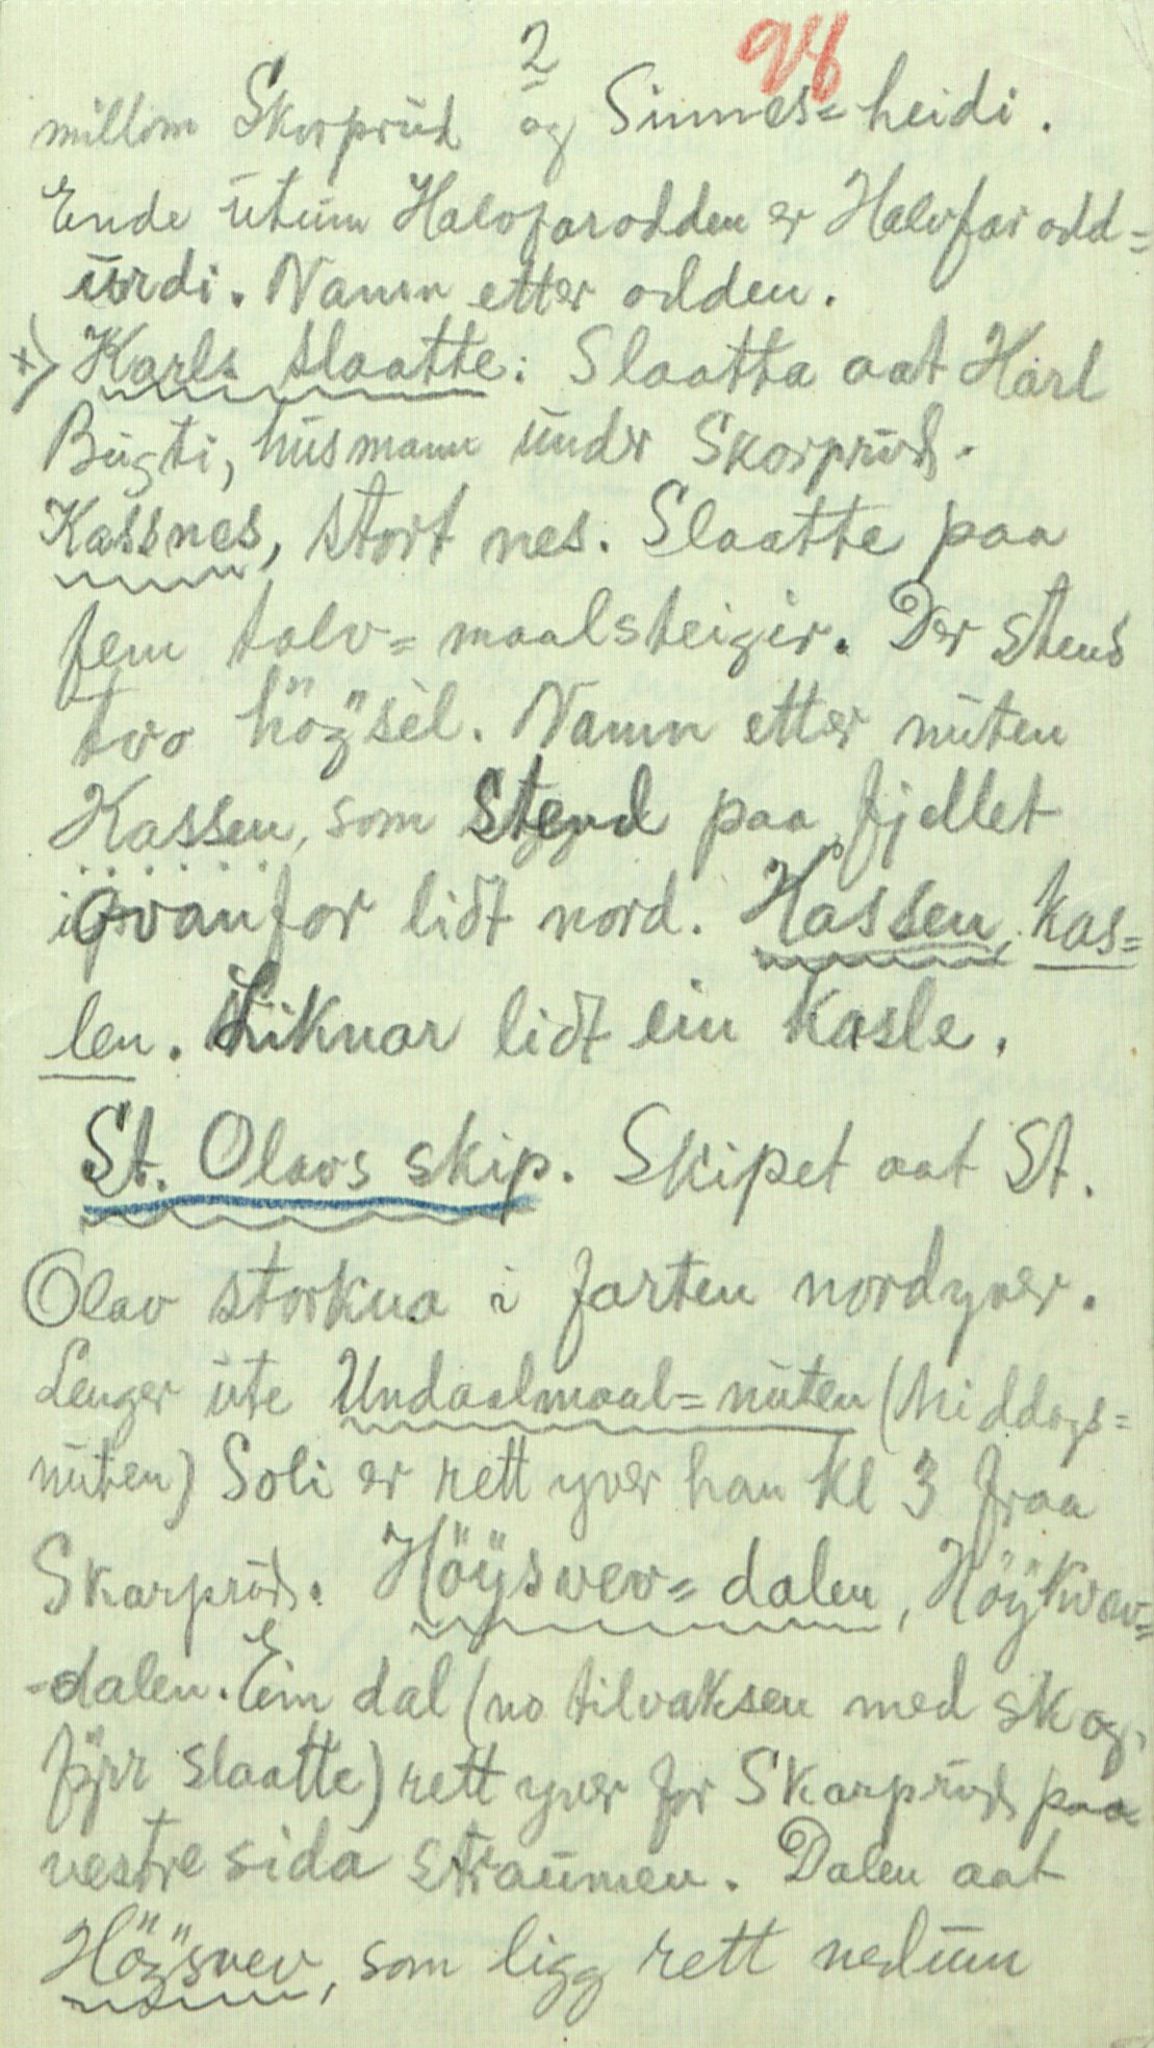 2 98
millom Skorprud og Sinnes=heidi.
Ende utum Halvfarodden er Halvfarodd=
urdi. Namn etter odden.
x) Karls slaatte: Slaatta aat Karl
Bugti, husmann under Skorprud.
Kassnes, stort nes. Slaatte paa
fem talv=maalsteigir. Der stend
two höysel. Namn etter nuten
Kassen, som stend paa fjellet
ovanfor lidt nord. Kassen, kas=
len. Liknar lidt ein kasle.
St. Olavs skip. Skipet aat St.
Olav storkna i farten nordyver.
Lenger ute Undaalmaal=nuten (Middags=
nuten) Soli er rett yver han Kl 3 fraa
Skarprud. Höÿsvev=dalen, Höÿkvav=
-dalen. Ein dal (no tilvaksen med skog,
fyrr slaatte) rett yver for Skarprud paa
vestre sida straumen. Dalen aat
Höÿsvev, som ligg rett nedum